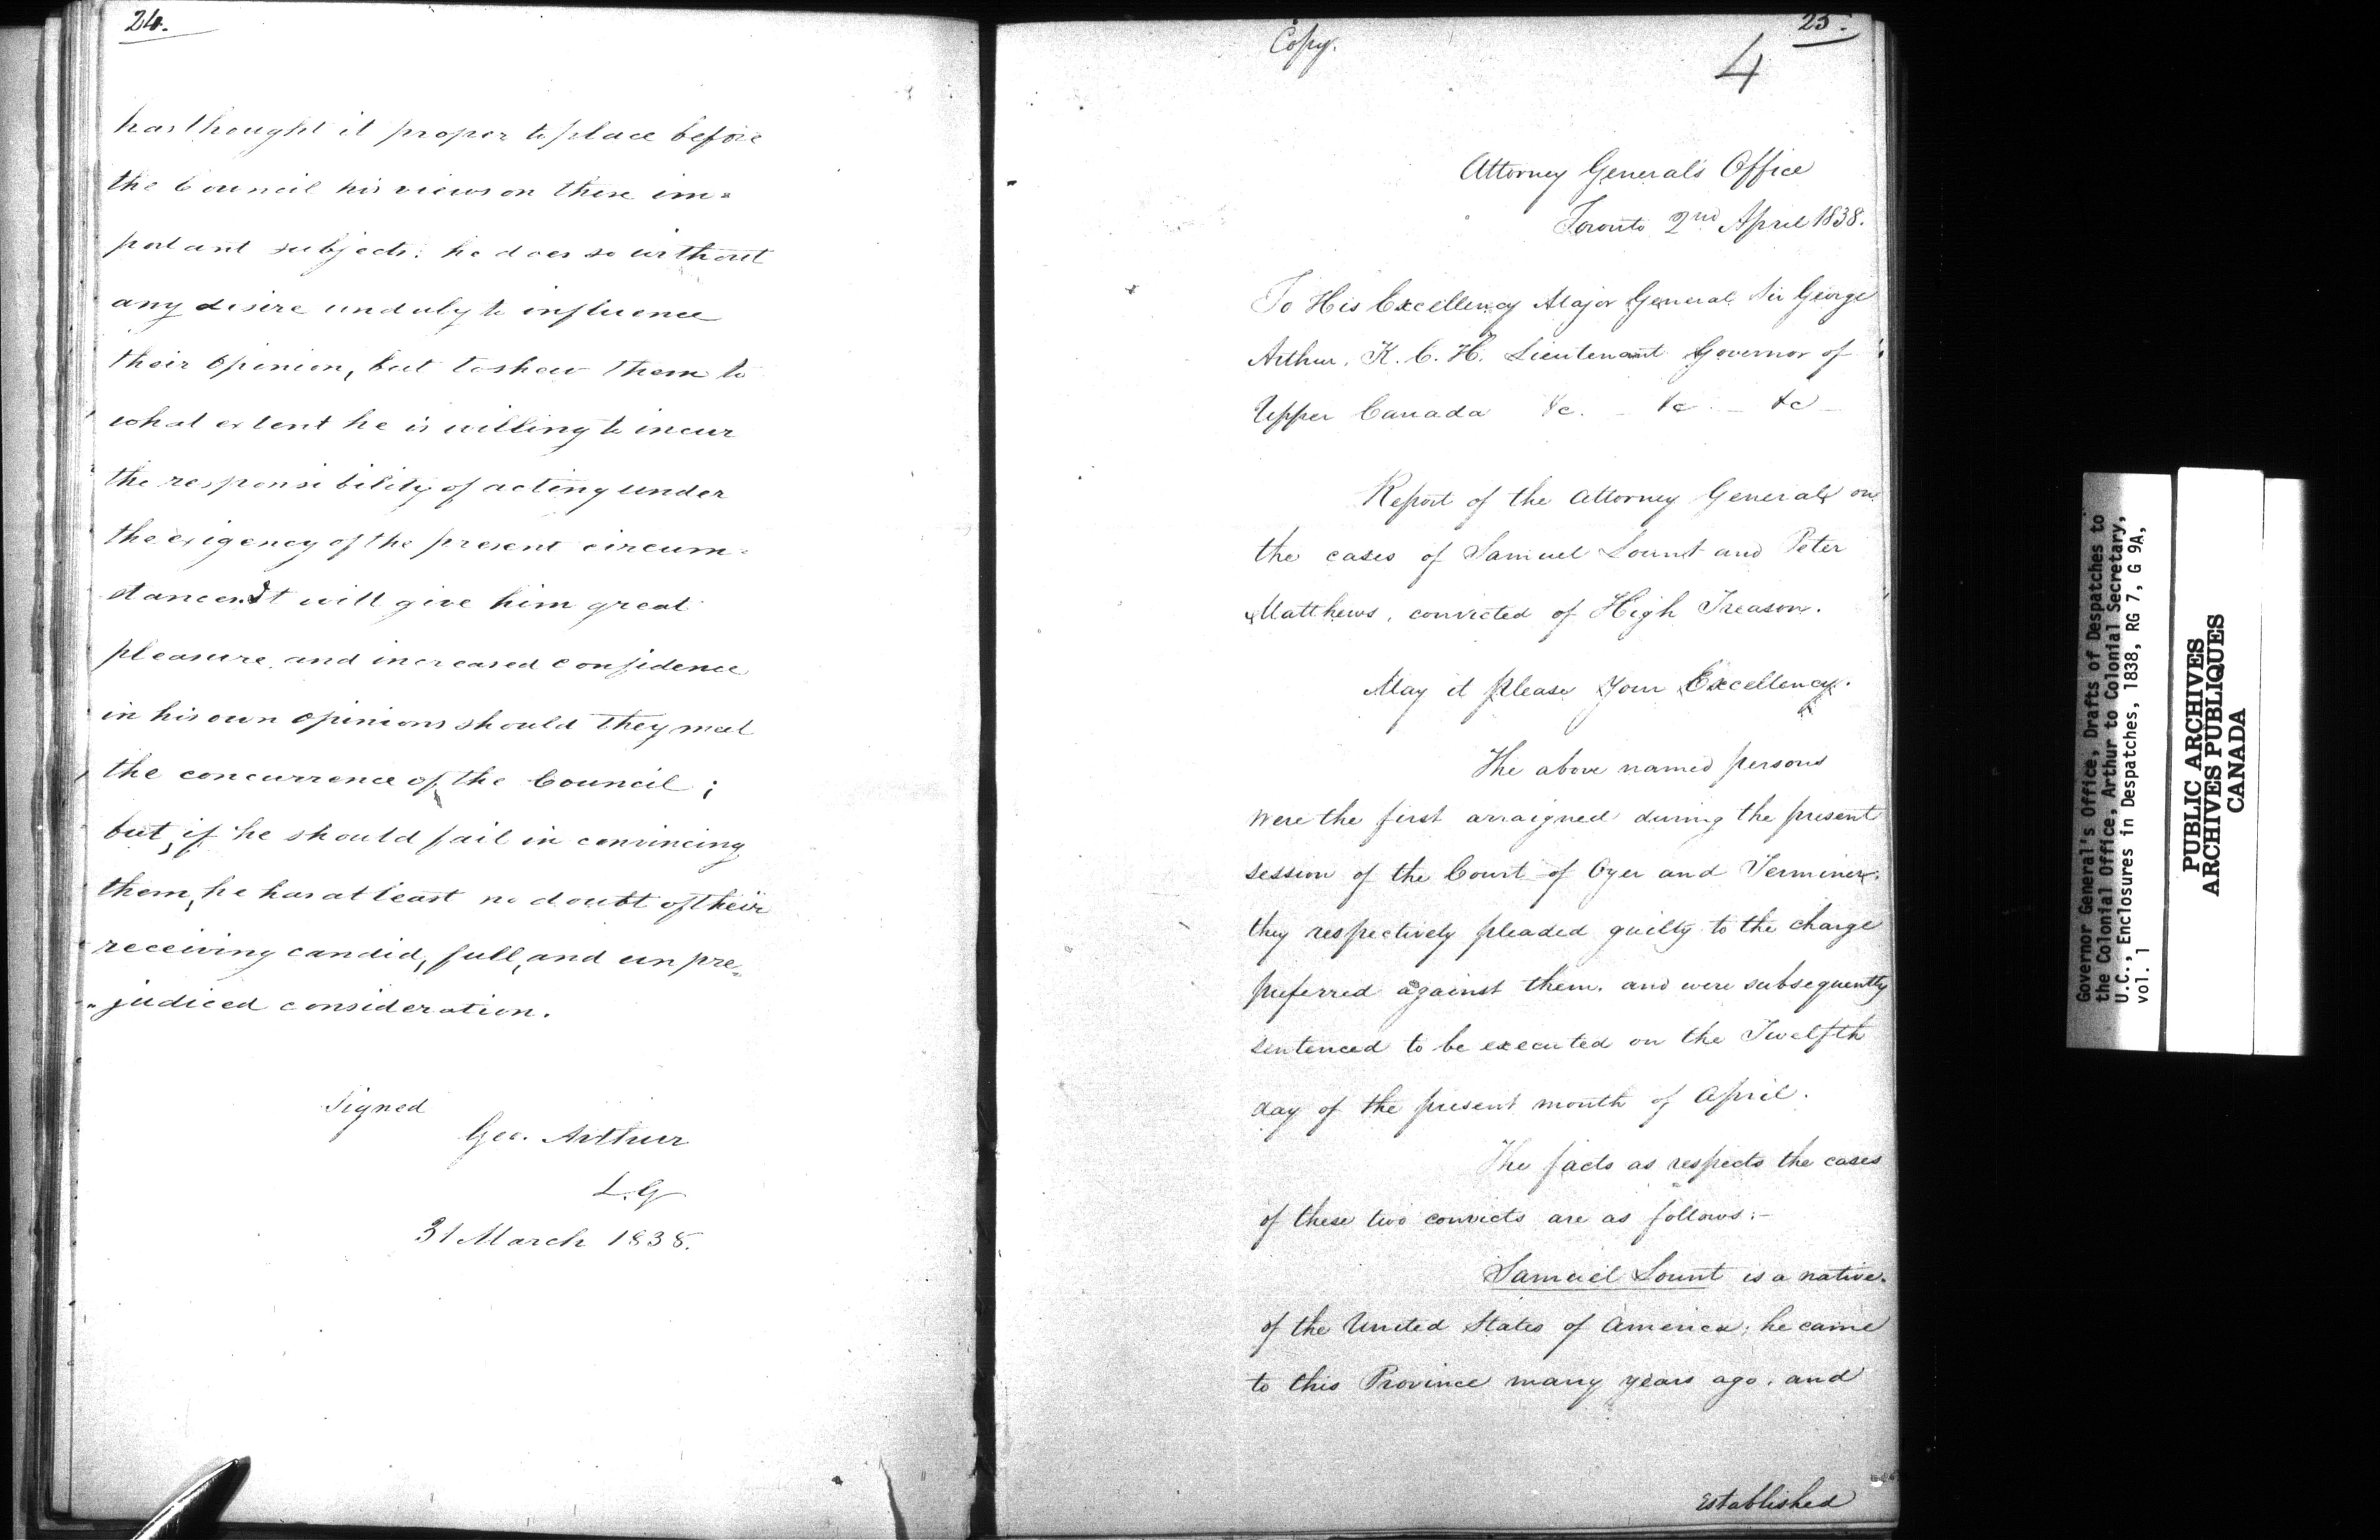 24.
has thought it proper to place before
the Council his views on these im=
portant subjects: he does so without
any desire unduly to influence
their opinion, but to shew them to
what extent he is willing to incur
the responsibility of acting under
the exigency of the present circum=
stances. It will give him great
pleasure, and increased confidence
in his own opinions should they meet
the concurrence of the Council;
but, if he should fail in convincing
them, he has at least no doubt of their
receiving candid, full, and unpre=
"judiced consideration.
Signed
Geo. Arthur
L.G
31 March 1838.
Copy.
25.
4
Attorney General's Office
Toronto 2nd April 1838.
To His Excellency Major General Sir George
Arthur, K.C.H. Lieutenant Governor of
Upper Canada &c. - &c. - &c -
Report of the Attorney General on
the cases of Samuel Lount and Peter
Matthews, convicted of High Treason.
May it please Your Excellency.
The above named persons
were the first arraigned during the present
session of the Court of Oyer and Terminer.
they respectively pleaded guilty to the charge
preferred against them, and were subsequently
sentenced to be executed on the Twelfth
day of the present month of April.
The facts as respects the cases
of these two convicts are as follows:-
Samuel Lount is a native
of the United States of America; he came
to this Province many years ago, and
established
Governor General's Office, Drafts of Despatches to
the Colonial Office, Arthur to Colonial Secretary,
U.C., Enclosures in Despatches, 1838, RG 7, G 9A,
vol. 1
PUBLIC ARCHIVES
ARCHIVES PUBLIQUES
CANADA